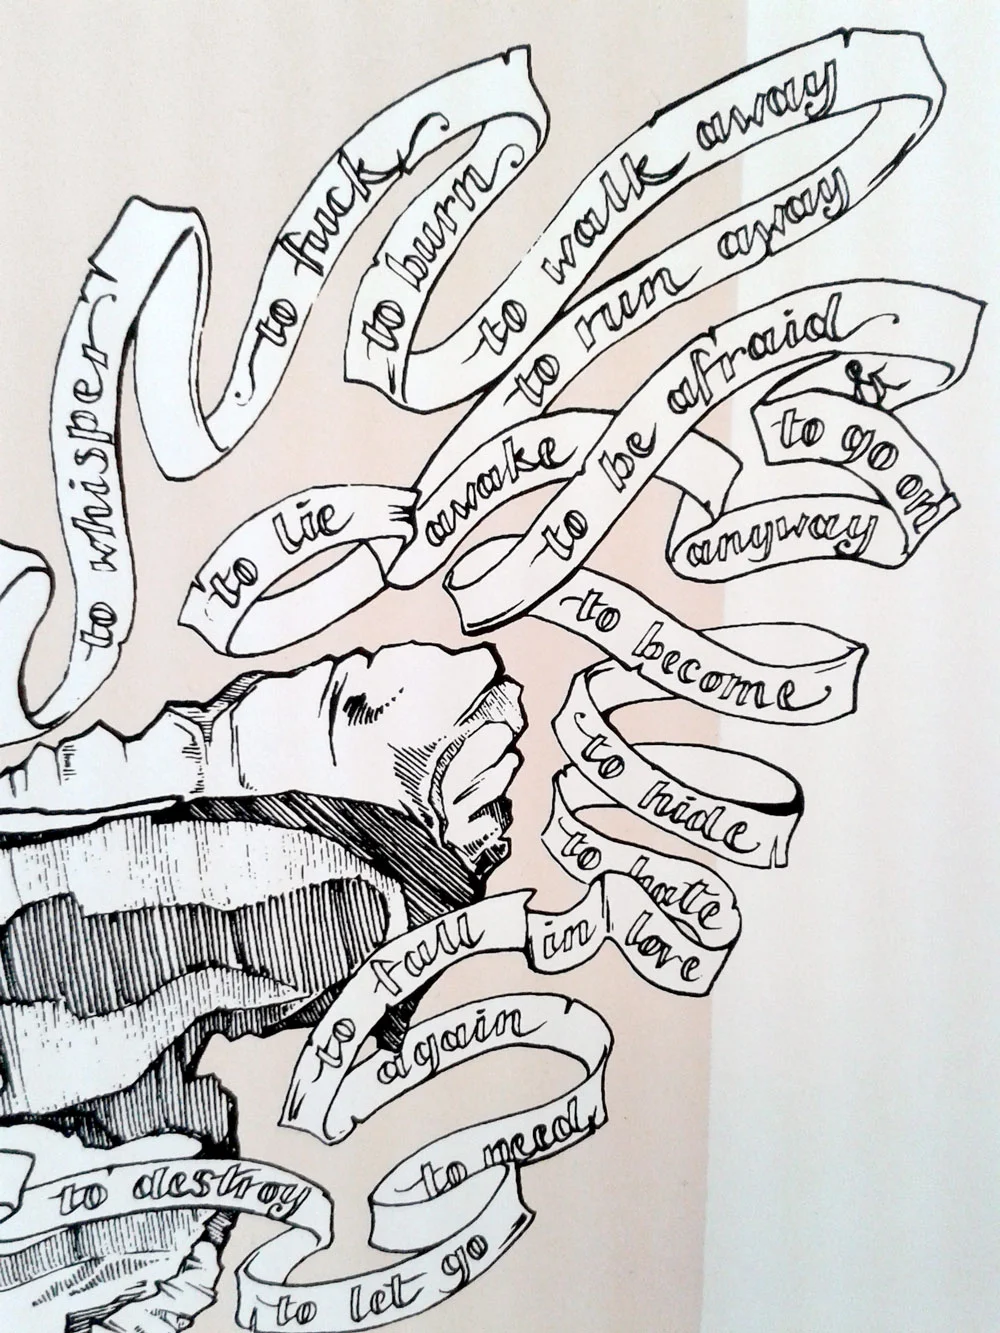 to whisper
to fuck
to burn
to walk away
to run away
to lie
awake
to be afraid
&
to go on
anyway
to become
to hide
to hate
to fall in love
again
to need
to let go
to destroy